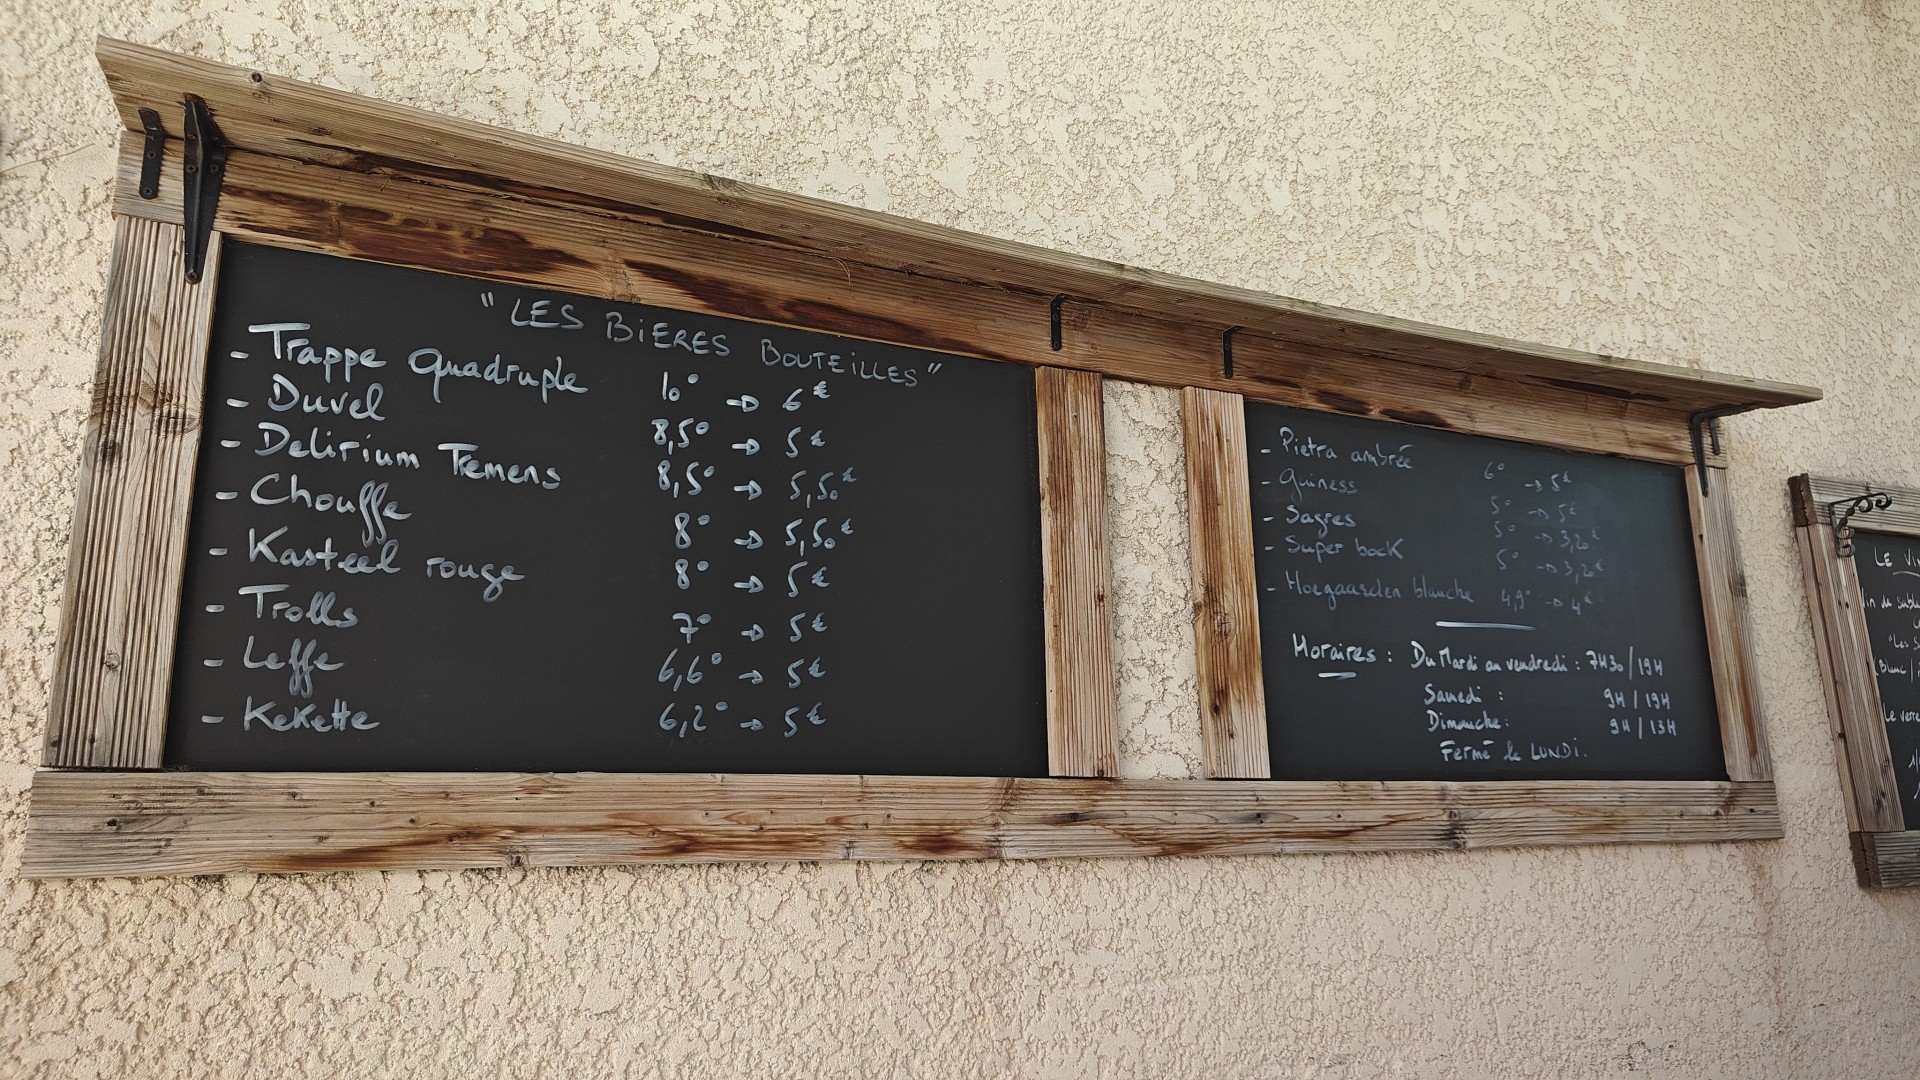 "LES BiERES BOUTEILLES"
- Trappe Quadruple 10° → 6€
- Duvel 8,5° → 5€
- Delirium Tremens 8,5° → 5,50€
- Chouffe 8° → 5,50€
- Kasteel rouge 8° → 5€
- Trolls 7° → 5€
- Leffe 6,6° → 5€
- KeKette 6,2° → 5€
- Pietra ambrée 6° → 5€
- Guiness 5° → 5€
- Sagres 5° → 3,20€
- Super bocK 5° → 3,20€
- Hoegaarden blanche 4,9° → 4€
Horaires : Du Mardi au vendredi : 7H30/19H
Samedi : 9H/19H
Dimanche : 9H/13H
Fermé le LUNDi.
LE
"Les
Le verre